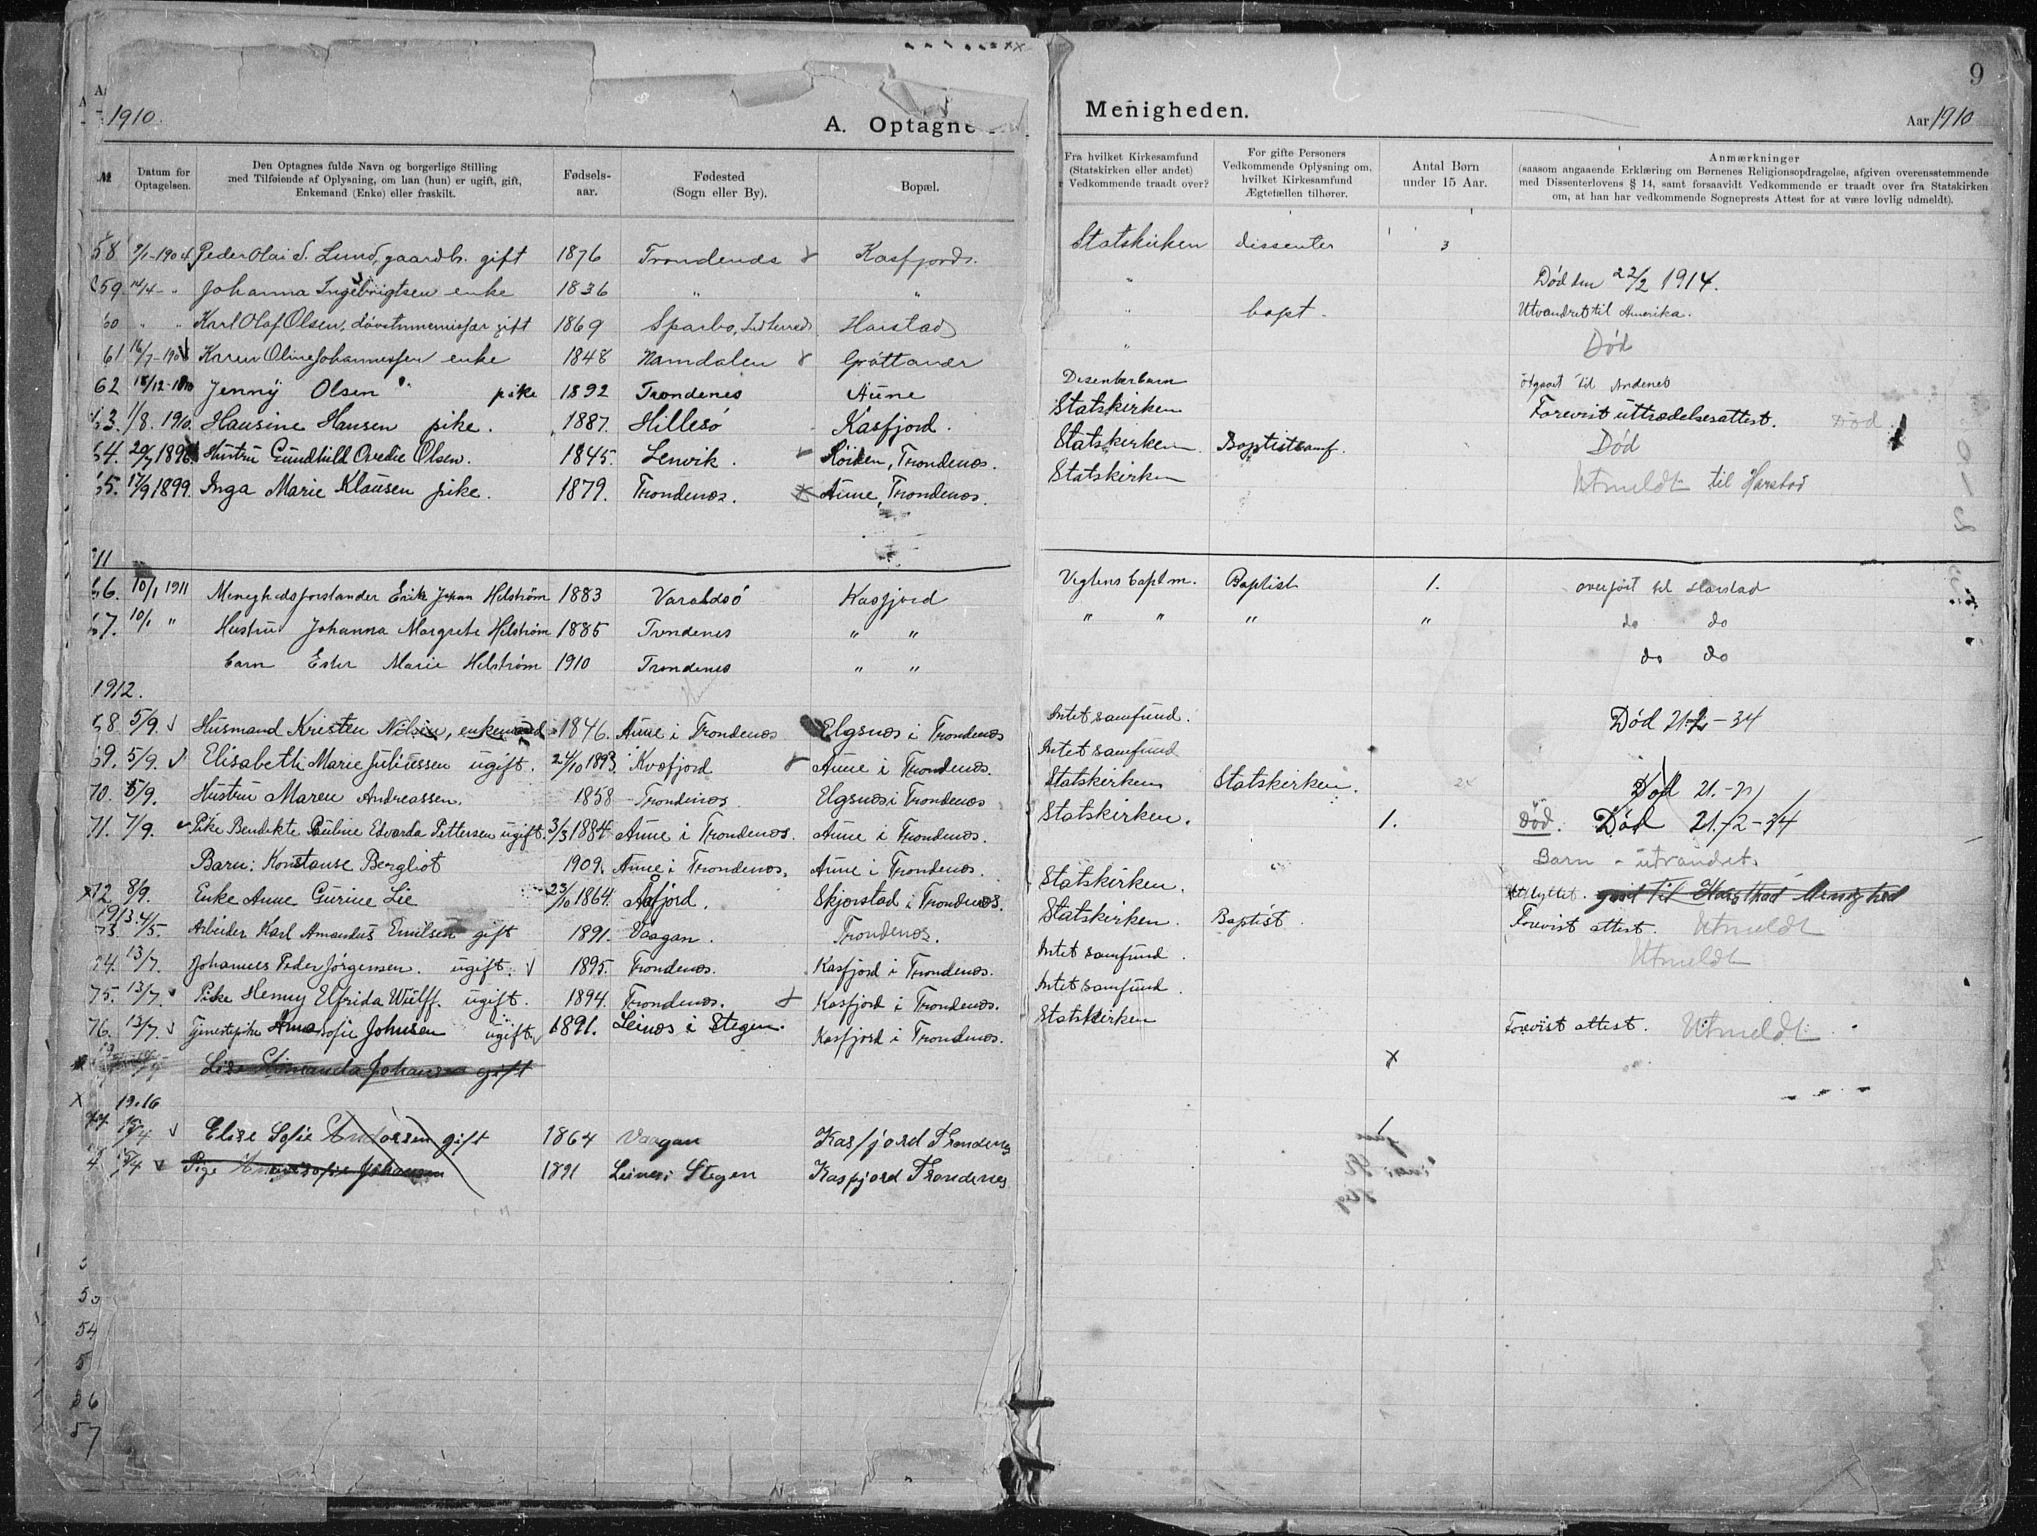 9
1910.
A. Optagne
Menigheden.
Aar 1910
№
Datum for Optagelsen.
Den Optagnes fulde Navn og borgerlige Stilling
med Tilføiende af Oplysning, om han (hun) er ugift, gift,
Enkemand (Enke) eller fraskilt.
Fødsels-
aar.
Fødested
(Sogn eller By).
Bopæl.
Fra hvilket Kirkesamfund
(Statskirken eller andet)
Vedkommende traadt over?
For gifte Personers
Vedkommende Oplysning om,
hvilket Kirkesamfund
Ægtefællen tilhører.
Antal Børn
under 15 Aar.
Anmærkninger
(saasom angaaende Erklæring om Børnenes Religionsopdragelse, afgiven overensstemmende
med Dissenterlovens § 14, samt forsaavidt Vedkommende er traadt over fra Statskirken
om, at han har vedkommende Sogneprests Attest for at være lovlig udmeldt).
58 9/1-1904 Peder Olai S. Lund, gaardb. gift 1876 Trondenes Kasfjord. Statskirken dissenter 3
59. 14/4 - " Johanna Ingebrigtsen enke 1836 " " " Død den 22/2 1914.
60 " " Karl Olaf Olsen, gift 1869 Sparbo, Harstad " bapt. Utvandret til Amerika.
61 16/7-190 Karen Oline Johannesen enke 1848 Namdalen Grøttavær " Død
62 18/12-1910 Jenny Olsen pike 1892 Trondenes Aune Disenterbarn til Andenes
63. 1/8. 1910. Hansine Hansen pike. 1887. Hillesö Kasfjord. Statskirken Forevist uttrædelsesattest. Död
64. 20/7 1896 Hustru Gundhild Ovedie Olsen. 1845. Lenvik. Röiken, Trondenæs. Statskirken. Baptistsamf. Död
65. 17/9 1899. Inga Marie Klausen pike. 1879. Trondenæs. Aune, Trondenæs. Statskirken Utmeldt til Harstad
11
66. 10/1 1911 Menighedsforstander Erik Johan Helström 1883 Varaldsö Kasfjord Vegtens baptm. Baptist 1. overført til Harstad
67. 10/1 " Hustru Johanna Margrete Helström 1885 Trondenes " " " " " " do do
barn Ester Marie Helström 1910 Trondenes " " do do
1912.
68 5/9. Husmand Kristen Nilsen, enkemand 1846. Aune i Trondenæs Elgsnæs i Trondenæs Intet samfund. Död 21-2-34
69. 5/9. Elisabeth Marie Juliussen ugift. 24/10 1893. Kvæfjord Aune i Trondenæs. Intet samfund
70. 5/9. Hustru Maren Andreassen. 1858 Trondenæs Elgsnæs i Trondenæs Statskirken Statskirken. Död
71. 7/9. Pike Bendikte Pauline Edvarda Pettersen ugift. 3/3 1884. Aune i Trondenæs. Aune i Trondenæs. Statskirken. 1. Död. Död 21-2-34
Barn: Konstanse Bergliot 1909. Aune i Trondenæs. Aune i Trondenæs. Barn - utvandret.
72 8/9. Enke Anne Gurine Lie 23/10 1864. Åfjord. Skjorstad i Trondenæs. Statskirken. Utflyttet. gaat til Harsthad Menighed
1913.
73. 4/5. Arbeider Karl Amandus Emilsen gift 1891. Vaagan. Trondenæs. Statskirken. Baptist. Forevist attest. Utmeldt
74. 13/7. Johannes Peder Jörgensen. ugift. 1895. Trondenæs. Kasfjord i Trondenæs. Intet samfund. Utmeldt
75. 13/7. Pike Henny Elfrida Wulff. ugift. 1894. Trondenæs. Kasfjord i Trondenæs. Intet samfund.
76. 13/7 Tjenestepike Anna Sofie Johnsen ugift 1891. Leinæs i Stegen. Kasfjord i Trondenæs. Statskirken Forevist attest. Utmeldt
Amanda Johansen gift
x
X 1916
77 15/4 Elise Sofie gift 1864 Vaagan Kasfjord Trondenes
15/4 Pige Johansen 1891 Leines i Stegen Kasfjord Trondenes
54
5
56
57